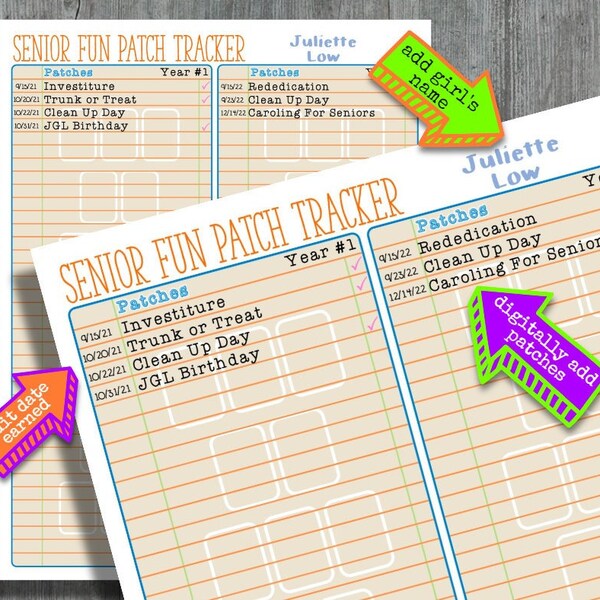 SENIOR FUN PATCH TRACKER
Juliette
Low
Patches Year #1
9/15/21 Investiture
10/20/21 Trunk or Treat
10/22/21 Clean Up Day
10/31/21 JGL Birthday
Patches
9/15/22 Rededication
9/23/22 Clean Up Day
12/14/22 Caroling For Seniors
add girl's
name
SENIOR FUN PATCH TRACKER
Juliette
Low
Patches Year #1
9/15/21 Investiture
10/20/21 Trunk or Treat
10/22/21 Clean Up Day
10/31/21 JGL Birthday
Patches
9/15/22 Rededication
9/23/22 Clean Up Day
12/14/22 Caroling For Senior
digitally add
patches
date
earned